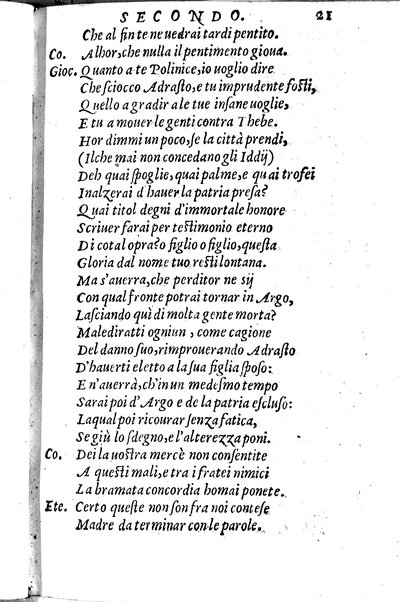 SECONDO. 21
Che al fin te ne uedrai tardi pentito.
Co. Alhor, che nulla il pentimento gioua.
Gioc. Quanto a te Polinice, io uoglio dire
Che sciocco Adrasto, e tu imprudente fosti,
Quello a gradir a le tue insane uoglie,
E tu a mouer le genti contra Thebe.
Hor dimmi un poco, se la città prendi,
(Ilche mai non concedano gli Iddij)
Deh quai spoglie, quai palme, e quai trofei
Inalzerai d'hauer la patria presa?
Quai titol degni d'immortale honore
Scriuer farai per testimonio eterno
Di cotal opra? o figlio o figlio, questa
Gloria dal nome tuo resti lontana.
Ma s'auerra, che perditor ne sij
Con qual fronte potrai tornar in Argo,
Lasciando quì di molta gente morta?
Malediratti ogniun, come cagione
Del danno suo, rimprouerando Adrasto
D'hauerti eletto a la sua figlia sposo:
E n'auerrà, ch'in un medesmo tempo
Sarai poi d'Argo e de la patria escluso:
Laqual poi ricourar senza fatica,
Se giù lo sdegno, e l'alterezza poni.
Co. Dei la uostra mercè non consentite
A questi mali, e tra i fratei nimici
La bramata concordia homai ponete.
Ete. Certo queste non son fra noi contese
Madre da terminar con le parole.